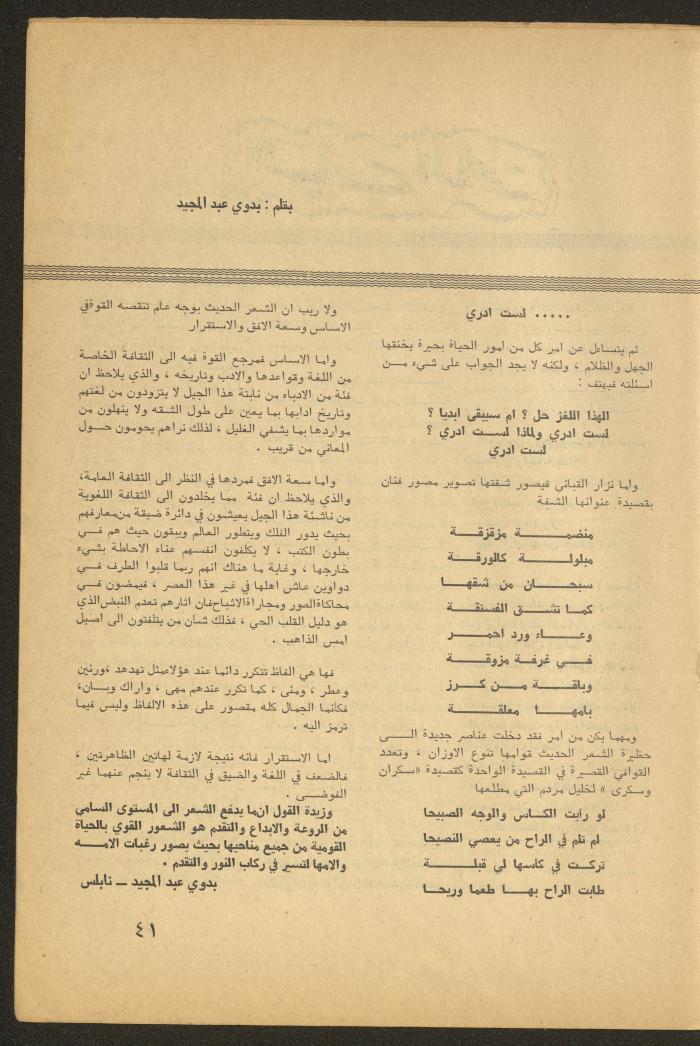 بقلم : بدوي عبد المجيد
..... لست ادري
ثم يتساءل عن امر كل من امور الحياة بحيرة يخنقها
الجهل والظلام ، ولكنه لا يجد الجواب على شيء مــن
اسئلته فيهتف :
الهذا اللغز حل ؟ ام سيبقى ابديا ؟
لست ادري ولماذا لســت ادري ؟
لست ادري
واما نزار القباني فيصور شفتها تصوير مصور فنان
بقصيدة عنوانها الشفة
منضمــــــة مزقزقـــة
مبلولـــــة كالورقـــة
سبحـــــان من شقهـــا
كمـــا تشـــق الفستقـــة
وعـــــاء ورد احمـــر
فـــي غرفـة مزوقـــة
وباقـــة مــن كـــرز
بامهـــا معلقـــة
ومهما يكن من امر فقد دخلت عناصر جديدة الـــى
حظيرة الشعر الحديث قوامها تنوع الاوزان ، وتعدد
القوافي القصيرة في القصيدة الواحدة كقصيدة «سكران
وسكرى » لخليل مردم التي مطلعها
لو رايت الكـــاس والوجه الصبيحا
لم تلم في الراح من يعصي النصيحا
تركـت في كاسها لي قبلـــــة
طابت الراح بهـــا طعما وريحـا
ولا ريب ان الشعر الحديث بوجه عام تنقصه القوةفي
الاساس وسعة الافق والاستقرار
واما الاساس فمرجع القوة فيه الى الثقافة الخاصة
من اللغة وقواعدها والادب وتاريخه ، والذي يلاحظ ان
فئة من الادباء من نابتة هذا الجيل لا يتزودون من لغتهم
وتاريخ ادابها بما يعين على طول الشقه ولا ينهلون من
مواردها بما يشفي الغليل ، لذلك نراهم يحومون حــول
المعاني من قريب .
واما سعة الافق فمردها في النظر الى الثقافة العامة،
والذي يلاحظ ان فئة مما يخلدون الى الثقافة اللغوية
من ناشئة هذا الجيل يعيشون في دائرة ضيقة من معارفهم
بحيث يدور الفلك ويتطور العالم ويبقون حيث هم فـــي
بطون الكتب ، لا يكلفون انفسهم عناء الاحاطة بشيء
خارجها ، وغاية ما هناك انهم ربما قلبوا الطرف في
دواوين عاش اهلها في غير هذا العصر ، فيمضون فـــي
محاكاةالصور ومجاراةالاشباح فان اثارهم تعدم النبض الذي
هو دليل القلب الحي ، فذلك شان من يتلفتون الى اصيل
امس الذاهب .
فها هي الفاظ تتكرر دائما عند هؤلاءمثل تهدهد ،ورنين
وعطر ، ومنى ، كما تكرر عندهم مهى ، واراك وبــان،
فكانما الجمال كله مقصور على هذه الالفاظ وليس فيما
ترمز اليه .
اما الاستقرار فانه نتيجة لازمة لهاتين الظاهرتين ،
فالضعف في اللغة والضيق في الثقافة لا ينجم عنهما غير
الفوضـــى .
وزبدة القول انما يدفع الشعر الى المستوى السامي
من الروعة والابداع والتقدم هو الشعور القوي بالحياة
القومية من جميع مناحيها بحيث يصور رغبات الامـــه
والامها لتسير في ركاب النور والتقدم .
بدوي عبد المجيد ـــ نابلس
٤١